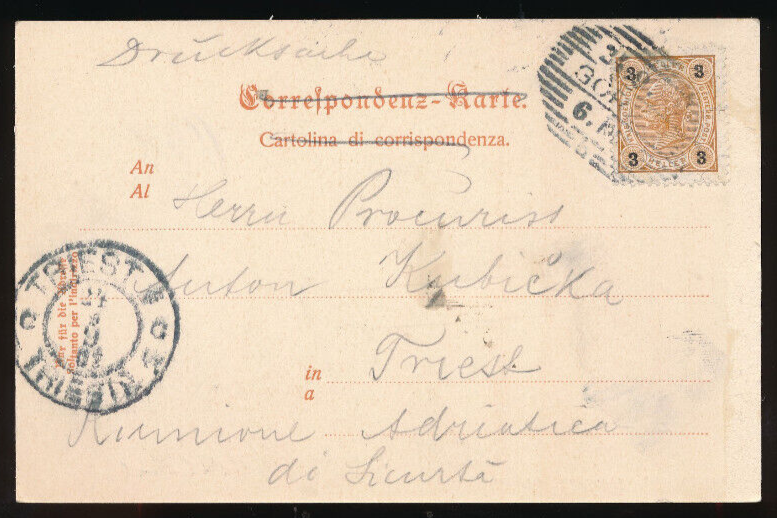 Drucksache
Correspondenz-Karte.
Cartolina di corrispondenza.
3 3
3 3
6.
An
Al
Herrn Procurist
Anton Kubička
in Triest
a
Riunione Adriatica
di Sicurtà
TRIEST
TRIESTE
Nur für die Adresse
Soltanto per l'indirizzo